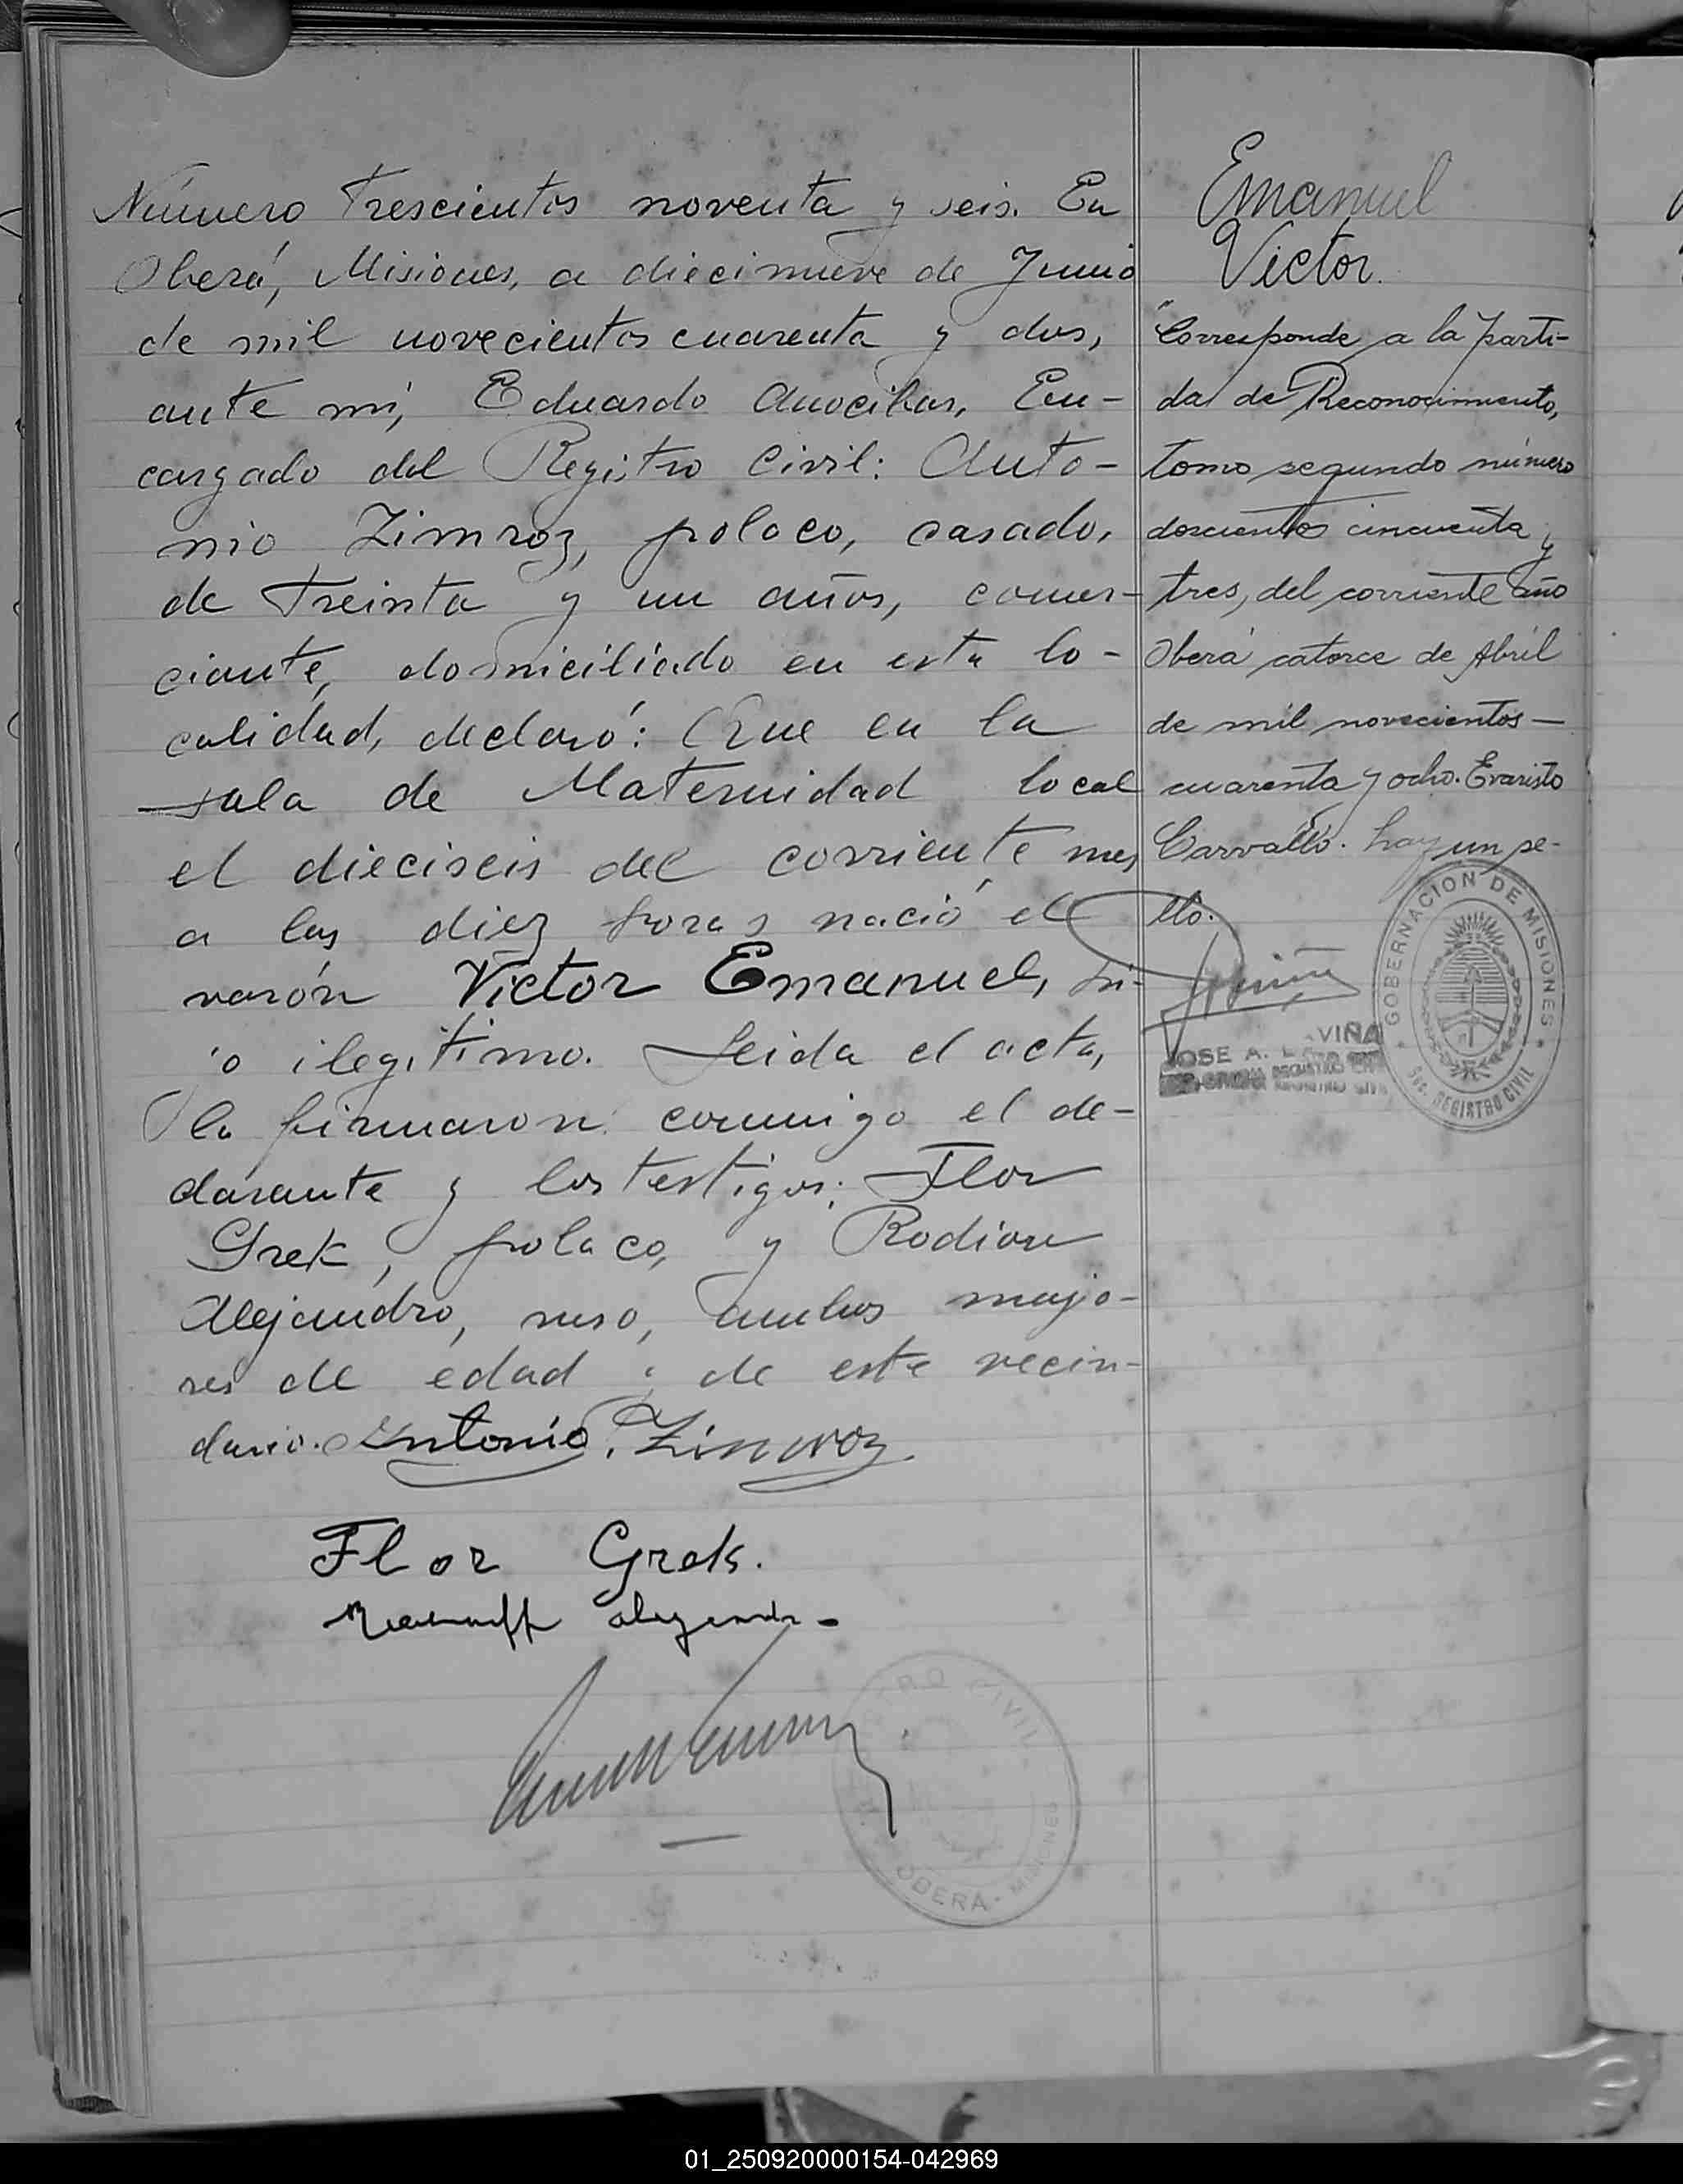 Número Trescientos noventa y seis. En
Oberá, Misiones, a diecinueve de Junio
de mil novecientos cuarenta y dos,
ante mí, Eduardo Anocibar, En-
cargado del Registro Civil: Anto-
nio Zimroz, polaco, casado,
de Treinta y un años, comer-
ciante, domiciliado en esta lo-
calidad, declaró: Que en la
sala de Maternidad local
el dieciseis del corriente mes,
a las diez horas nació el
varón Victor Emanuel, hi-
jo ilegitimo. Leida el acta,
la firmaron conmigo el de-
clarante y los testigos: Flor
Grek, polaco, y Rodion
Alejandro, ruso, ambos mayo-
res de edad y de este vecin-
dario. Antonio Zimroz
Flor Grek.
REGISTRO CIVIL
OBERÁ - MISIONES
Emanuel
Victor.
"Corresponde a la parti-
da de Reconocimiento,
tomo segundo número
doscientos cincuenta y
tres, del corriente año
Oberá catorce de Abril
de mil novecientos—
cuarenta y ocho. Evaristo
Carvallo. hay un se-
llo.
JOSE A. VIÑA
GOBERNACION DE MISIONES
REGISTRO CIVIL
01_250920000154-042969